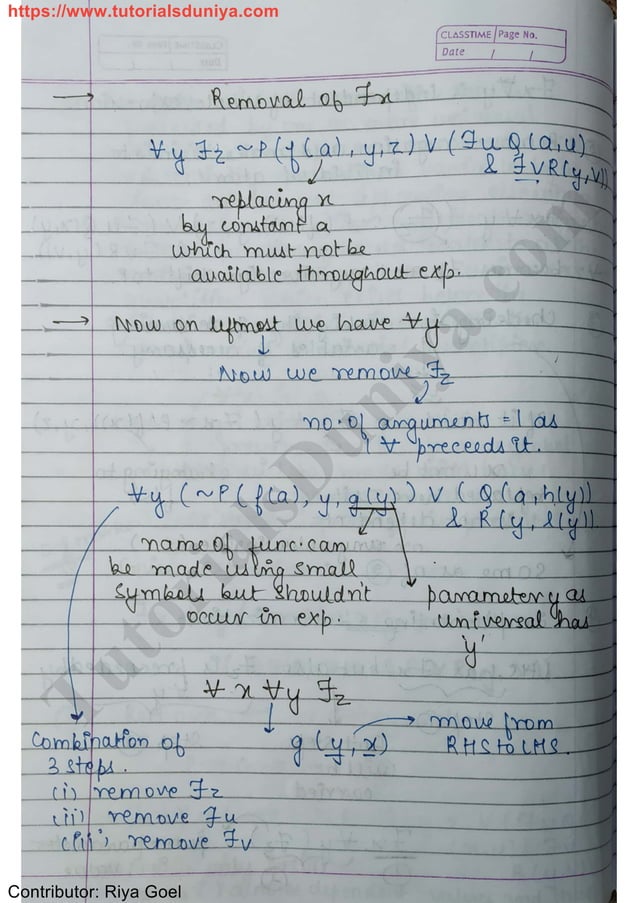 https://www.tutorialsduniya.com
CLASSTIME Page No.
Date / /
→ Removal of ∃x
∀y ∃z ~P(f(a), y, z) V (∃u Q(a, u)
& ∃V R(y, V))
replacing x
by constant a
which must not be
available throughout exp.
→ Now on leftmost we have ∀y
↓
Now we remove ∃z
no. of arguments = 1 as
1 ∀ preceeds it.
∀y (~P(f(a), y, g(y)) V (Q(a, h(y))
& R(y, l(y))
name of func. can
be made using small
symbols but shouldn't
occur in exp.
parameter y as
universal has
'y'
∀x ∀y ∃z
g(y, x) → move from
RHS to LHS.
Combination of
3 steps.
(i) remove ∃z
(ii) remove ∃u
(iii) remove ∃v
TutorialsDuniya.com
Contributor: Riya Goel